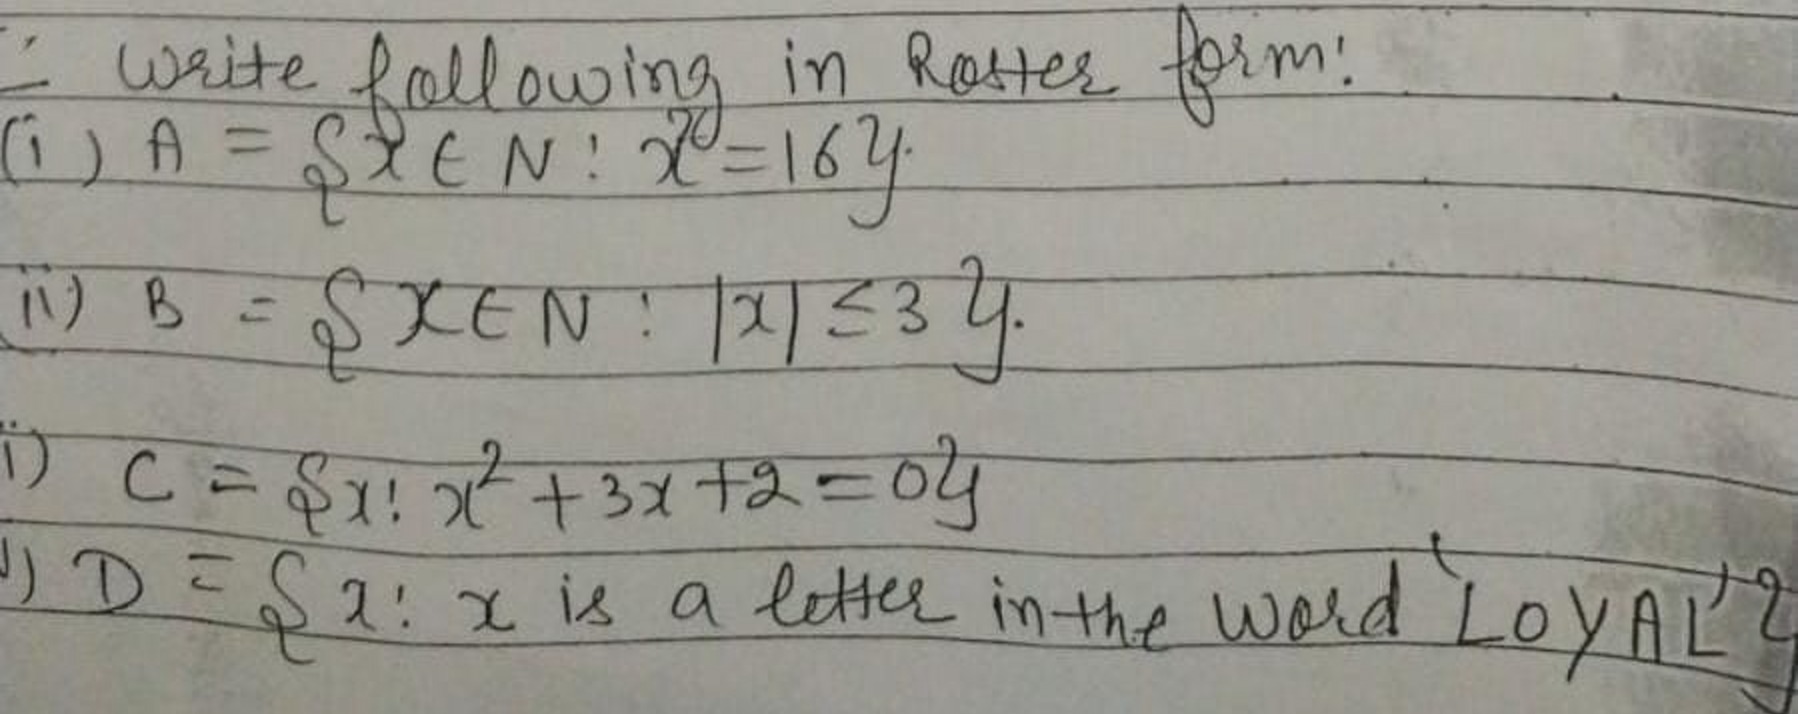 :- Write following in Roster form:
(i) A = {x ∈ N : x² = 16}.
ii) B = {x ∈ N : |x| ≤ 3}.
i) C = {x : x² + 3x + 2 = 0}
) D = {x : x is a letter in the word 'LOYAL'}